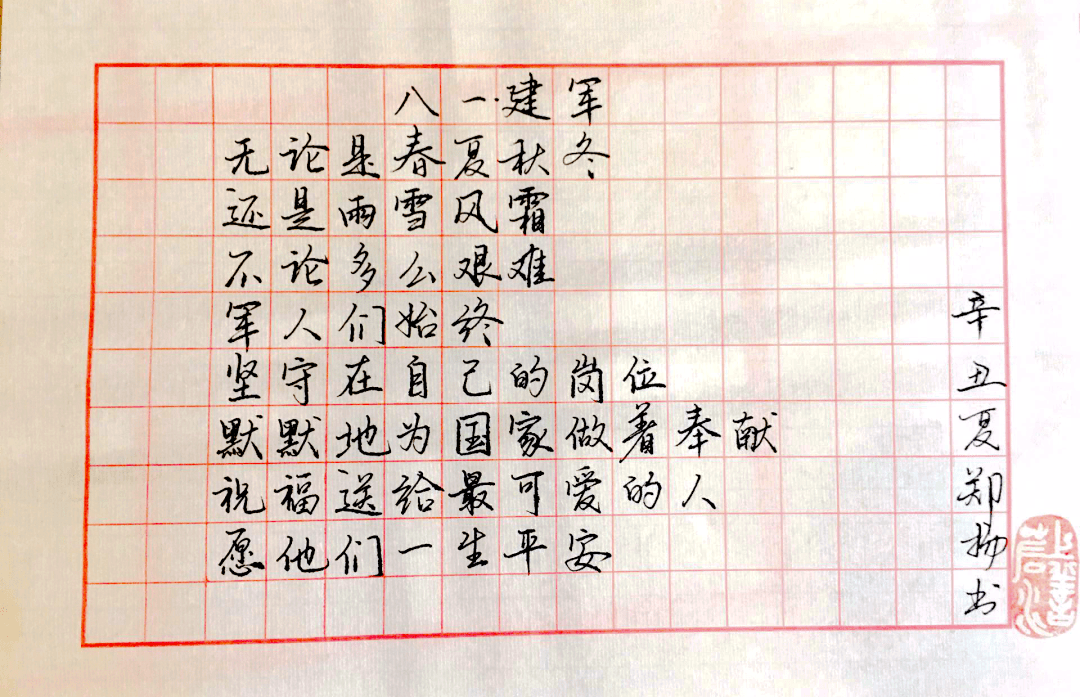 八一·建军
无论是春夏秋冬
还是雨雪风霜
不论多么艰难
军人们始终
坚守在自己的岗位
默默地为国家做着奉献
祝福送给最可爱的人
愿他们一生平安
辛丑夏郑杨书
上善若水